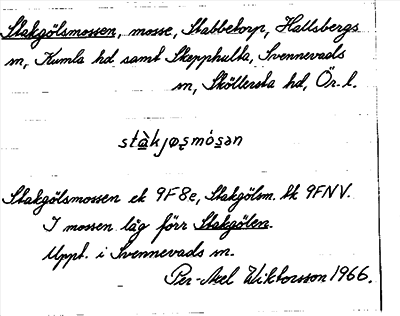 Stakgölsmossen, mosse, Stabbetorp, Hallsbergs
sn, Kumla hd samt Skepphulta, Svennevads
sn, Sköllersta hd, Ör. l.
stàkjøsmósən
Stakgölsmossen ek 9F8e, Stakgölsm. tk 9FNV.
I mossen låg förr Stakgölen.
Uppt. i Svennevads sn.
Per-Axel Wiktorsson 1966.